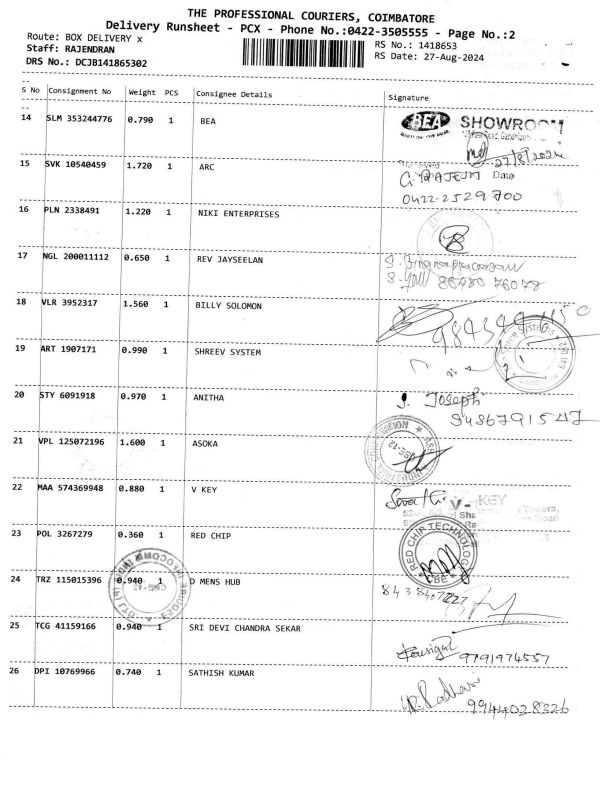 THE PROFESSIONAL COURIERS, COIMBATORE
Delivery Runsheet - PCX - Phone No.:0422-3505555 - Page No.:2
Route: BOX DELIVERY x
Staff: RAJENDRAN
DRS No.: DCJB141865302
RS No.: 1418653
RS Date: 27-Aug-2024
S No Consignment No Weight PCS Consignee Details Signature
14 SLM 353244776 0.790 1 BEA
BEA SHOWROOM
27/8/2024
15 SVK 10540459 1.720 1 ARC
Date
0422-2529700
16 PLN 2338491 1.220 1 NIKI ENTERPRISES
17 NGL 200011112 0.650 1 REV JAYSEELAN
76078
18 VLR 3952317 1.560 1 BILLY SOLOMON
19 ART 1907171 0.990 1 SHREEV SYSTEM
20 STY 6091918 0.970 1 ANITHA
J. Joseph
9486791547
21 VPL 125072196 1.600 1 ASOKA
22 MAA 574369948 0.880 1 V KEY
V-KEY
Towers,
Road
23 POL 3267279 0.360 1 RED CHIP
RED CHIP TECHNOLOGY
CBE
24 TRZ 115015396 0.940 1 D MENS HUB
8438407227
25 TCG 41159166 0.940 1 SRI DEVI CHANDRA SEKAR
9791974557
26 DPI 10769966 0.740 1 SATHISH KUMAR
9944028326